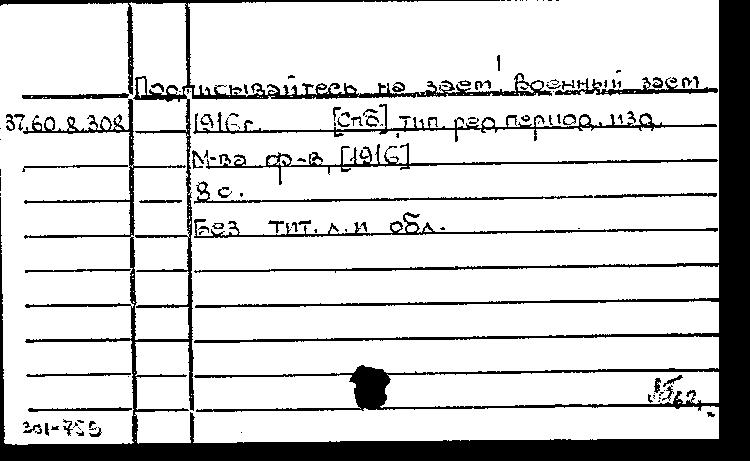 Подписывайтесь на заем! Военный заем
37.60.8.308 1916г. [Спб.] тип. ред. период. изд.
М-ва ф-в, [1916]
8 с.
Без тит. л. и обл.
62г.
301-755